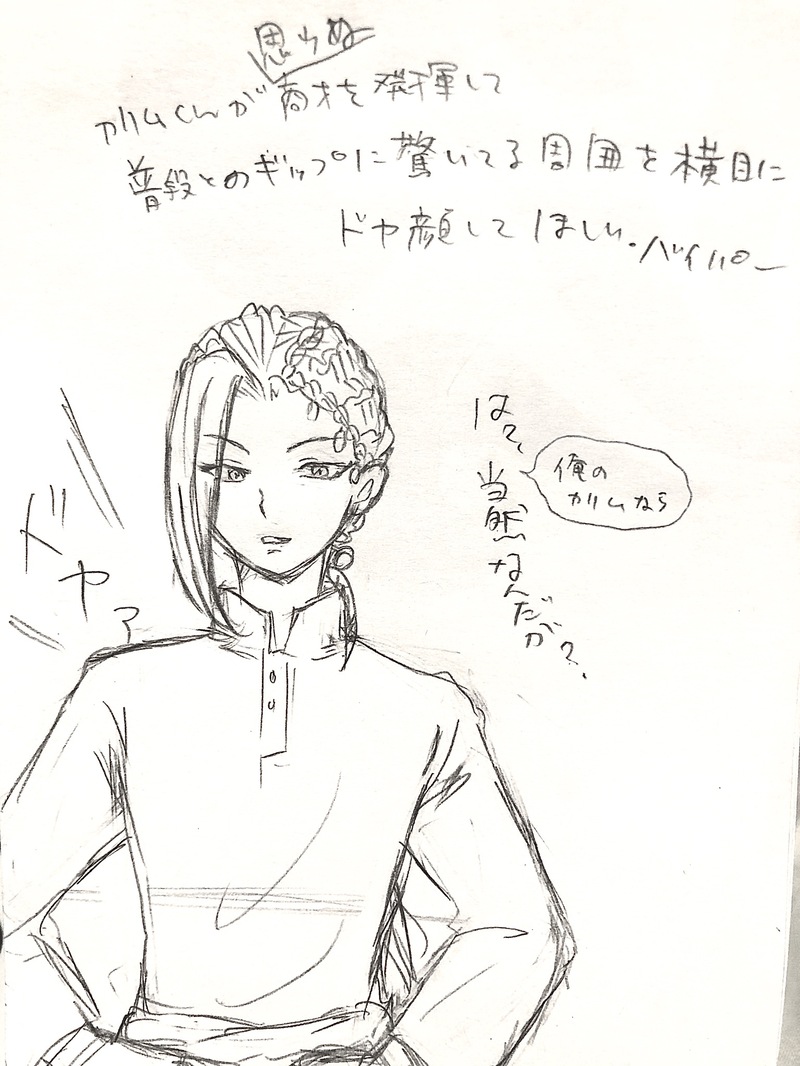 思わぬ
カリムくんが商才を発揮して
普段とのギャップに驚いてる周囲を横目に
ドヤ顔してほしい。バイパー
は?、当然なんだが?、
俺の
カリムなら
ドヤァ